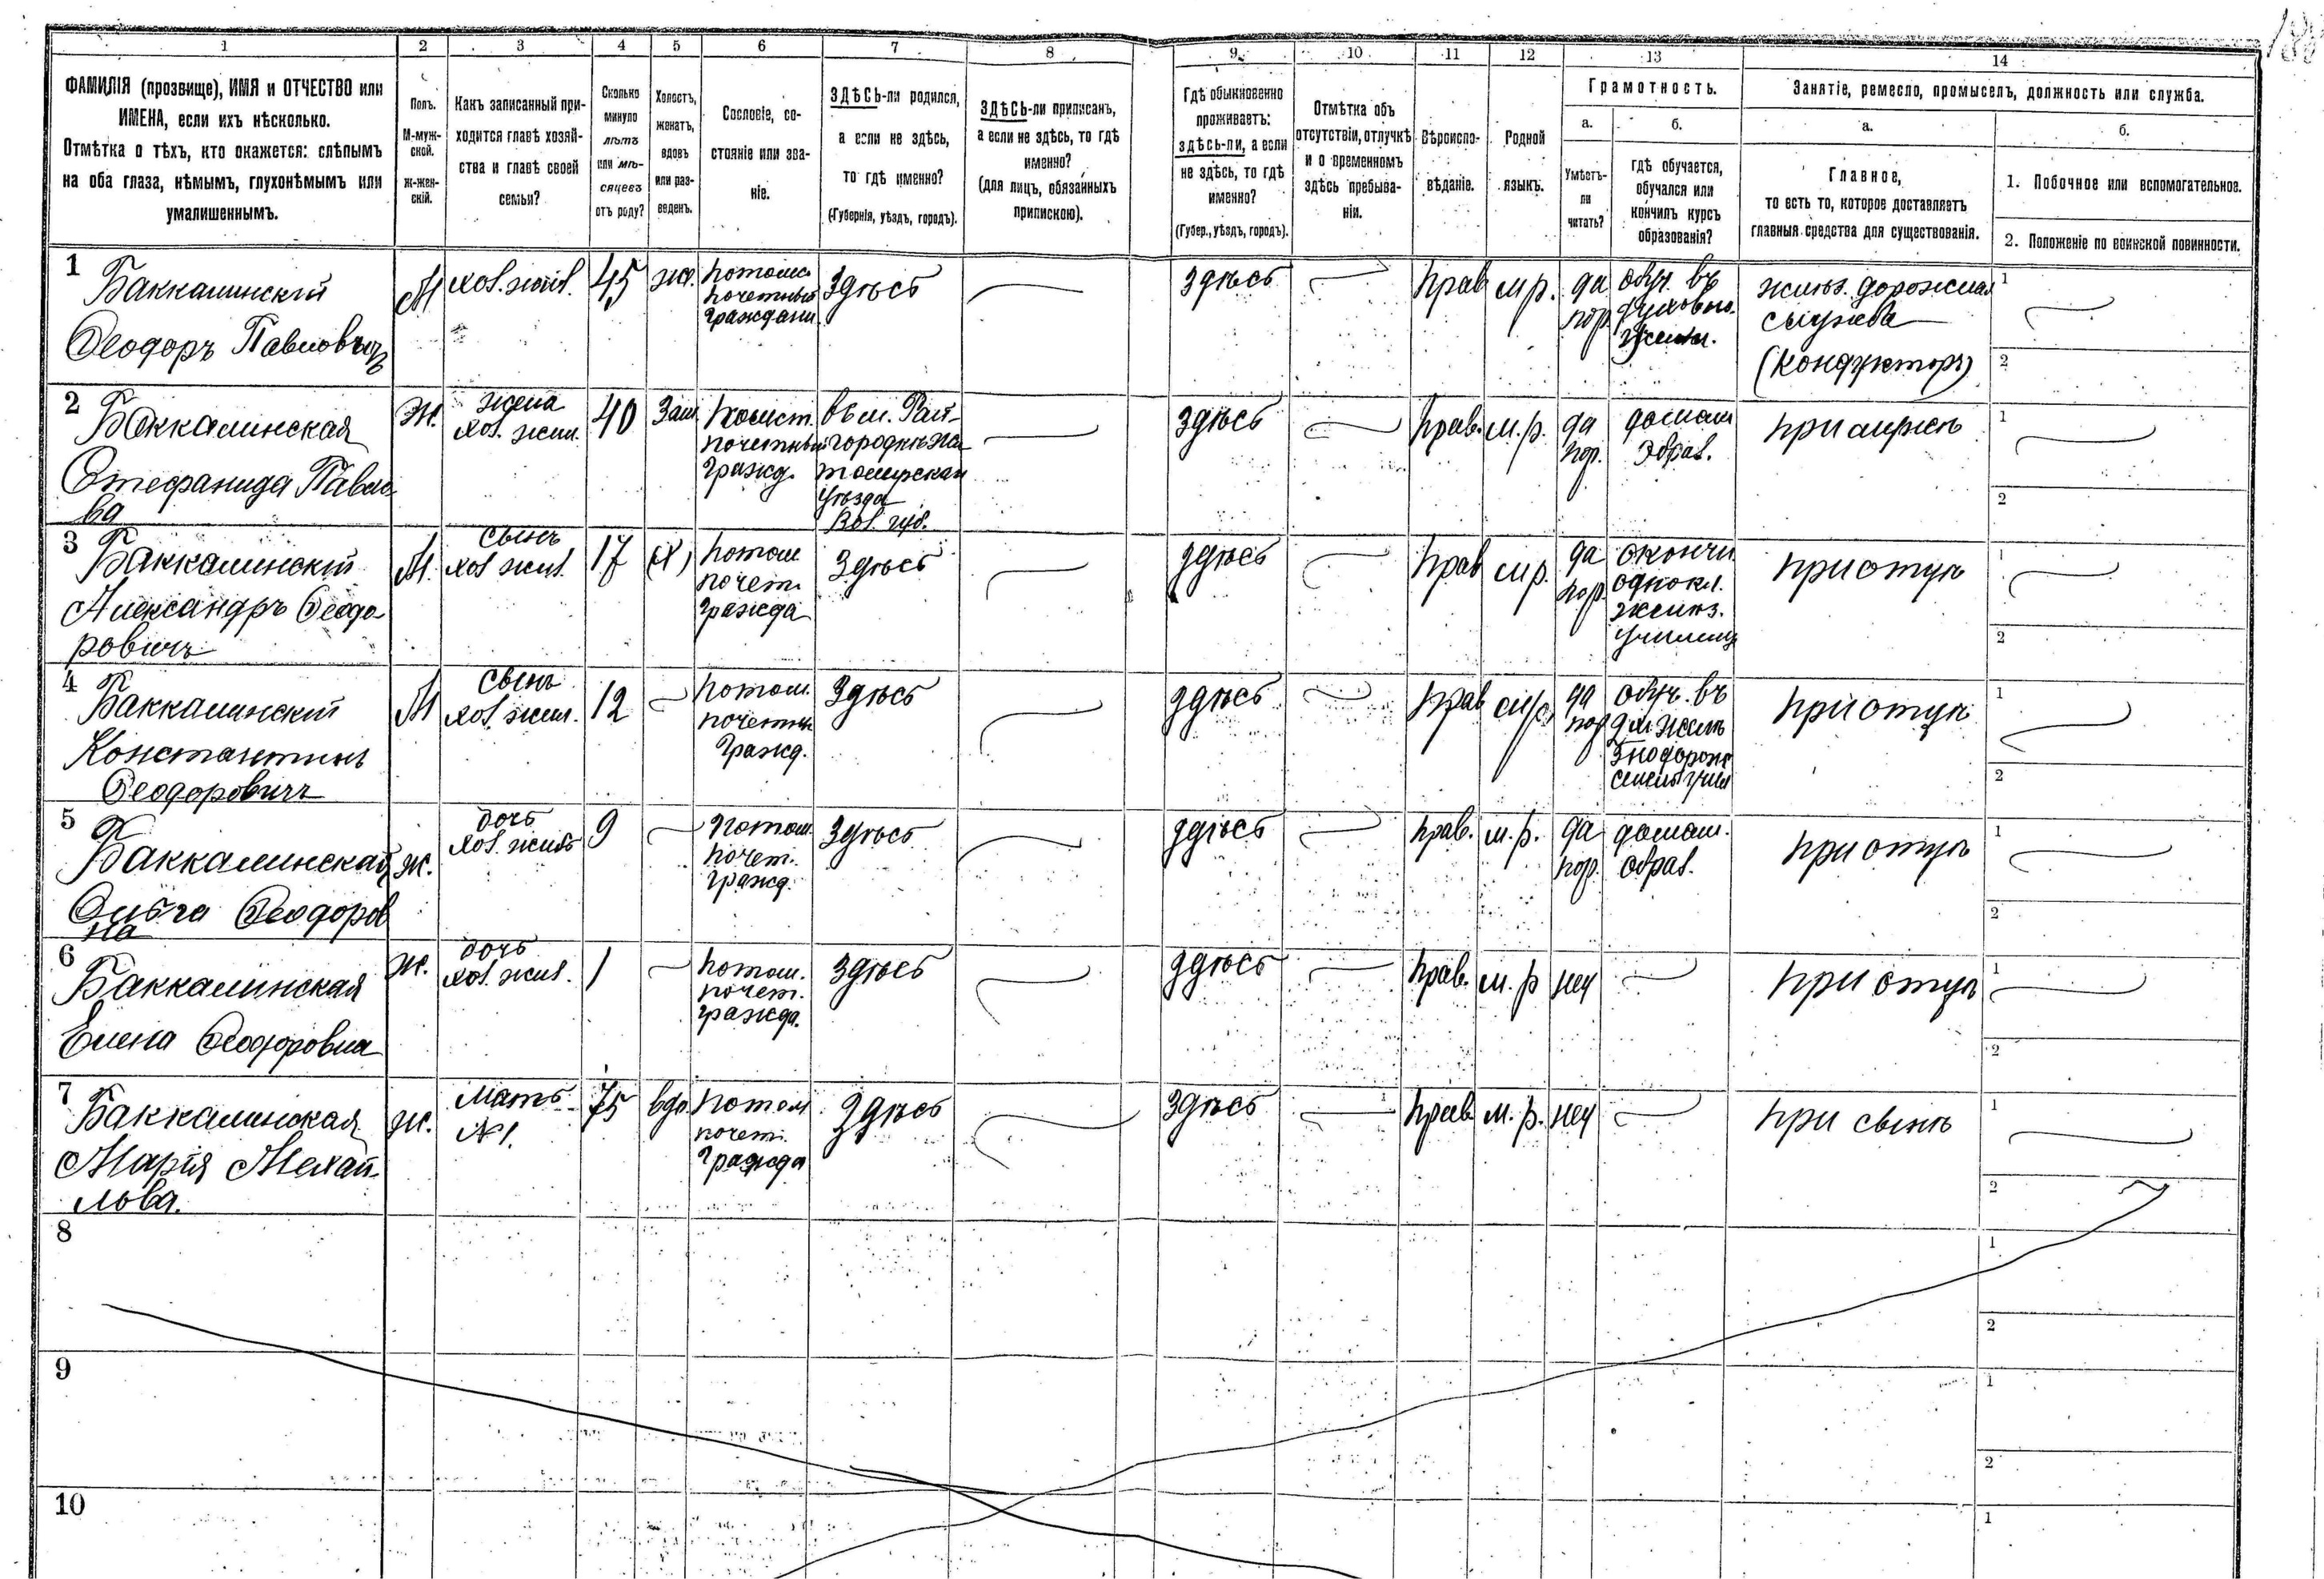 1 2 3 4 5 6 7 8 9. 10 11 12 13 14
ФАМИЛІЯ (прозвище), ИМЯ и ОТЧЕСТВО или
ИМЕНА, если ихъ нѣсколько.
Отмѣтка о тѣхъ, кто окажется: слѣпымъ
на оба глаза, нѣмымъ, глухонѣмымъ или
умалишеннымъ.
Полъ.
М-муж-
ской.
Ж-жен-
скій.
Какъ записанный при-
ходится главѣ хозяй-
ства и главѣ своей
семьи?
Сколько
минуло
лѣтъ
или мѣ-
сяцевъ
отъ роду?
Холостъ,
женатъ,
вдовъ
или раз-
веденъ.
Сословіе, со-
стояніе или зва-
ніе.
ЗДѢСЬ-ли родился,
а если не здѣсь,
то гдѣ именно?
(Губернія, уѣздъ, городъ).
ЗДѢСЬ-ли приписанъ,
а если не здѣсь, то гдѣ
именно?
(для лицъ, обязанныхъ
припискою).
Гдѣ обыкновенно
проживаетъ:
здѣсь-ли, а если
не здѣсь, то гдѣ
именно?
(Губер., уѣздъ, городъ).
Отмѣтка объ
отсутствіи, отлучкѣ
и о временномъ
здѣсь пребыва-
ніи.
Вѣроиспо-
вѣданіе.
Родной
языкъ.
Грамотность.
а.
Умѣетъ-
ли
читать?
б.
гдѣ обучается,
обучался или
кончилъ курсъ
образованія?
Занятіе, ремесло, промыселъ, должность или служба.
а.
Главное,
то есть то, которое доставляетъ
главныя средства для существованія.
б.
1. Побочное или вспомогательное.
2. Положеніе по воинской повинности.
1
Баккалинскій
Ѳеодоръ Павловичъ
М
45
потомс.
почетный
граждани
Здѣсь
здѣсь
Прав
м р.
да
обуч. въ
духовно.
служба
(кондукторъ)
1
2
2
Баккалинская
Стефанида Павло
ва
Ж.
жена
40
Зам
почетный
гражд.
уѣзда
Вол. губ.
здѣсь
Прав.
м. р.
да
домаш
при мужѣ
1
2
3
Баккалинскій
Александръ Ѳеодо-
ровичъ
М.
сынъ
17
потом
почетн
гражда
Здѣсь
здѣсь
Прав
м р.
да
окончи
однокл.
училищ
при отцѣ
1
2
4
Баккалинскій
Константинъ
Ѳеодоровичъ
М
сынъ
12
потом.
почетн
гражд.
Здѣсь
здѣсь
Прав
м р
да
обуч. въ
при отцѣ
1
2
5
Баккалинская
Ольга Ѳеодоров
на
Ж.
дочь
9
потом.
почет.
гражд.
Здѣсь
здѣсь
Прав.
м. р.
да
домаш.
образ.
при отцѣ
1
2
6
Баккалинская
Елена Ѳеодоровна
Ж.
дочь
1
потом.
почет.
гражда.
здѣсь
здѣсь
Прав.
м. р
при отцѣ
1
2
7
Баккалинская
Марія Михай-
лова.
Ж.
Мать
№1.
75
вдо
потом
почет.
гражда
здѣсь
здѣсь
Прав
м. р.
при сынѣ
1
2
8
1
2
9
1
2
10
1